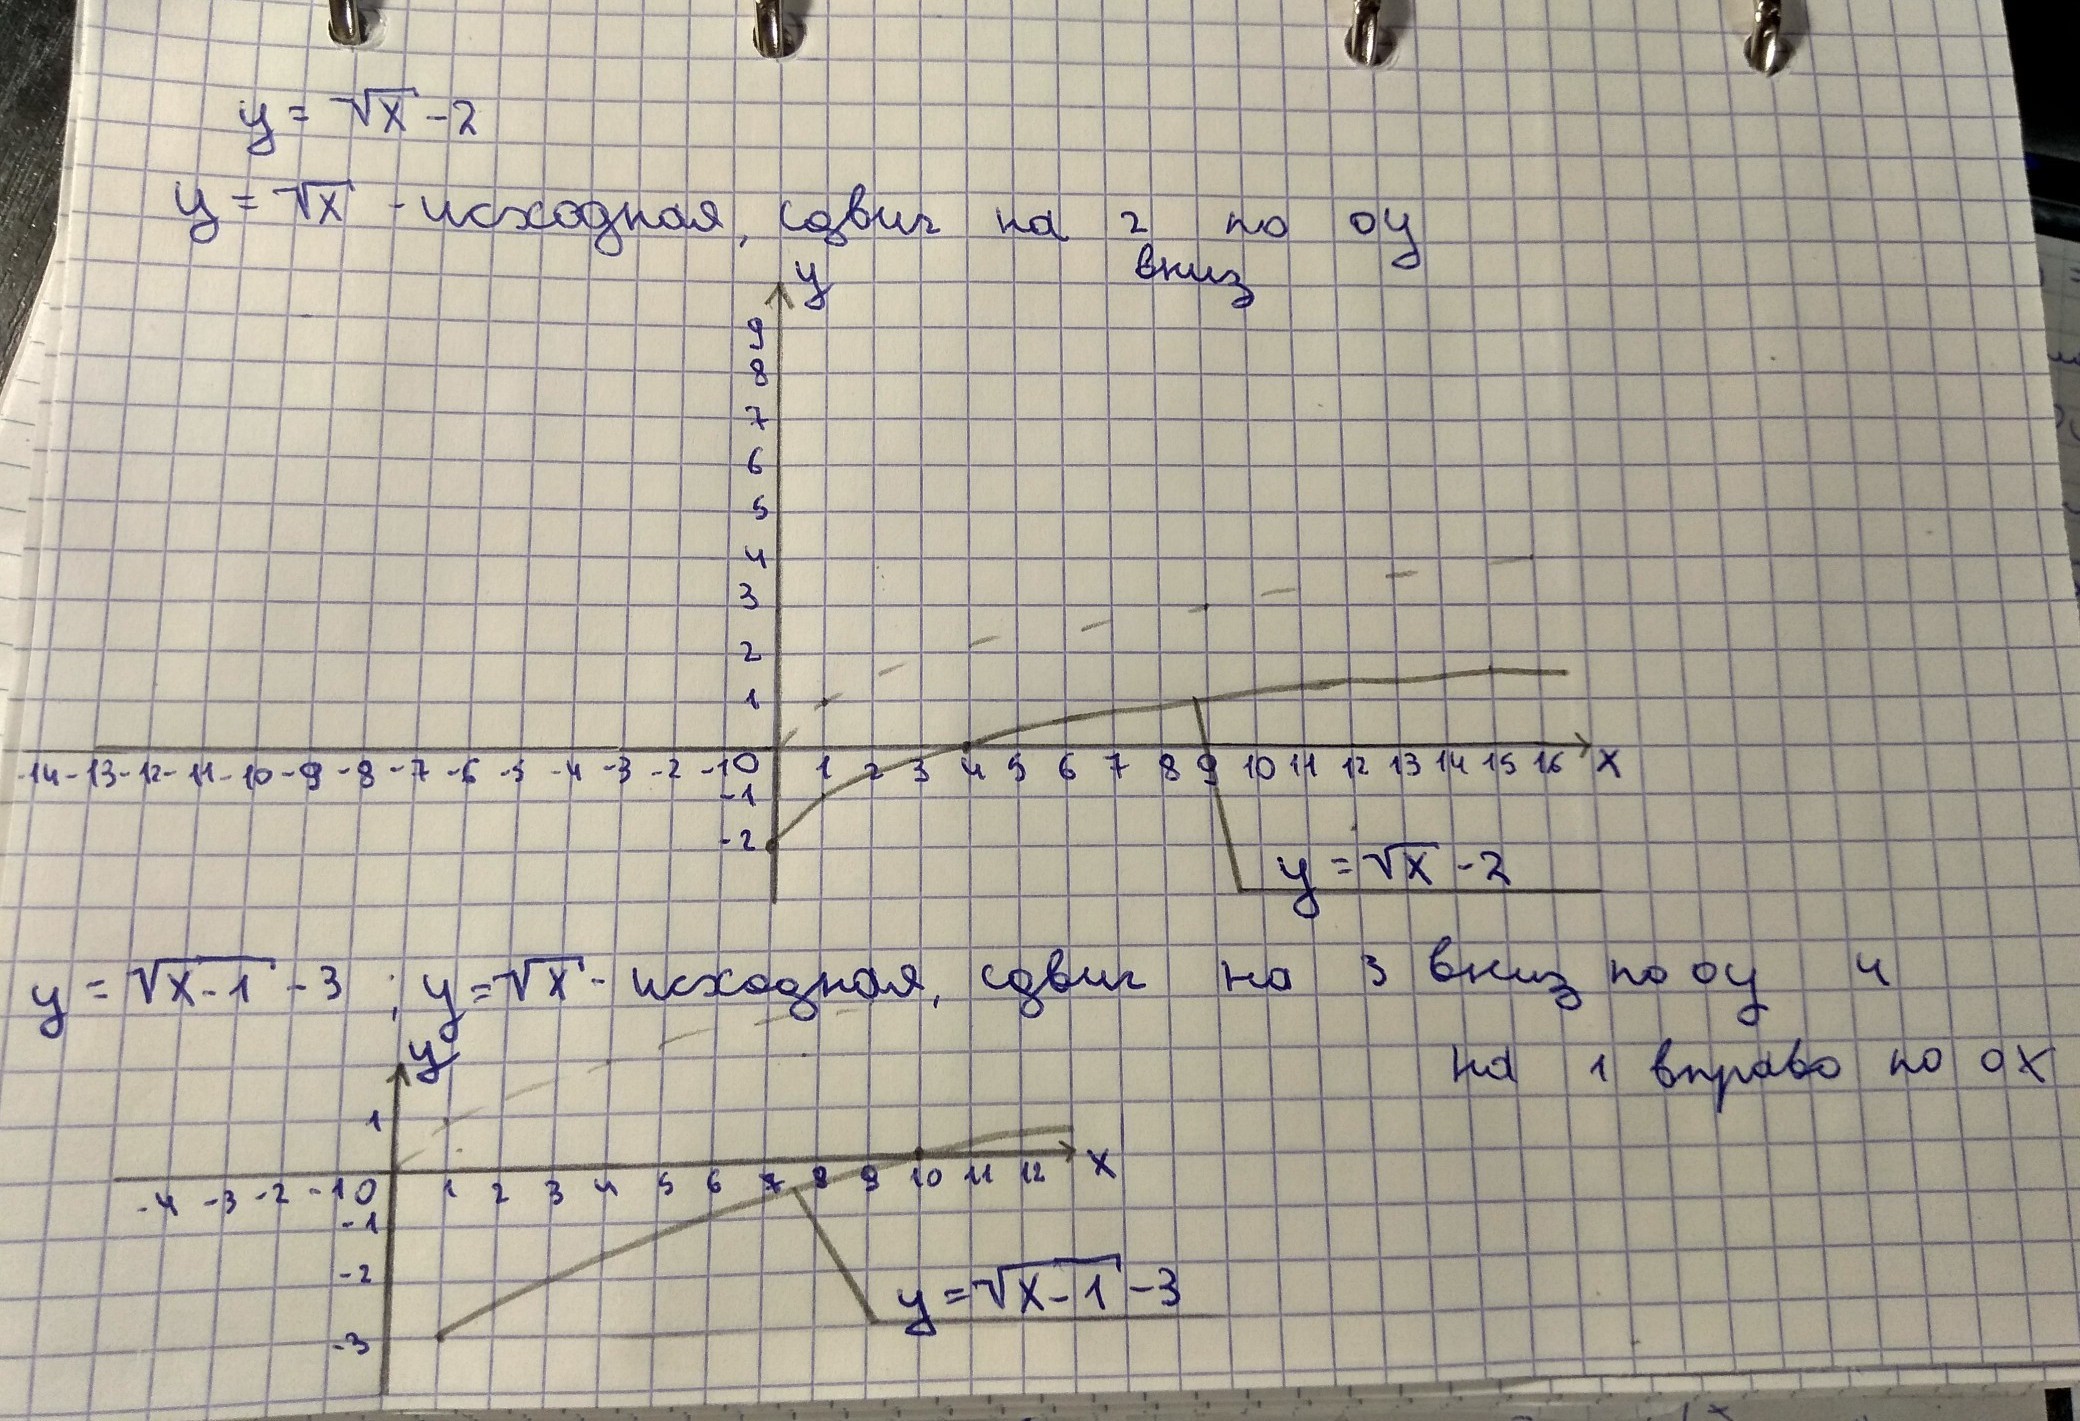 y = √x - 2
y = √x - исходная, сдвиг на 2 по oy
вниз
y
9
8
7
6
5
4
3
2
1
-14 -13 -12 -11 -10 -9 -8 -7 -6 -5 -4 -3 -2 -1 0 1 2 3 4 5 6 7 8 9 10 11 12 13 14 15 16 x
-1
-2
y = √x - 2
y = √x-1 - 3 ; y = √x - исходная, сдвиг на 3 вниз по oy и
на 1 вправо по ox
y
1
x
-4 -3 -2 -1 0 1 2 3 4 5 6 7 8 9 10 11 12
-1
-2
-3
y = √x-1 - 3